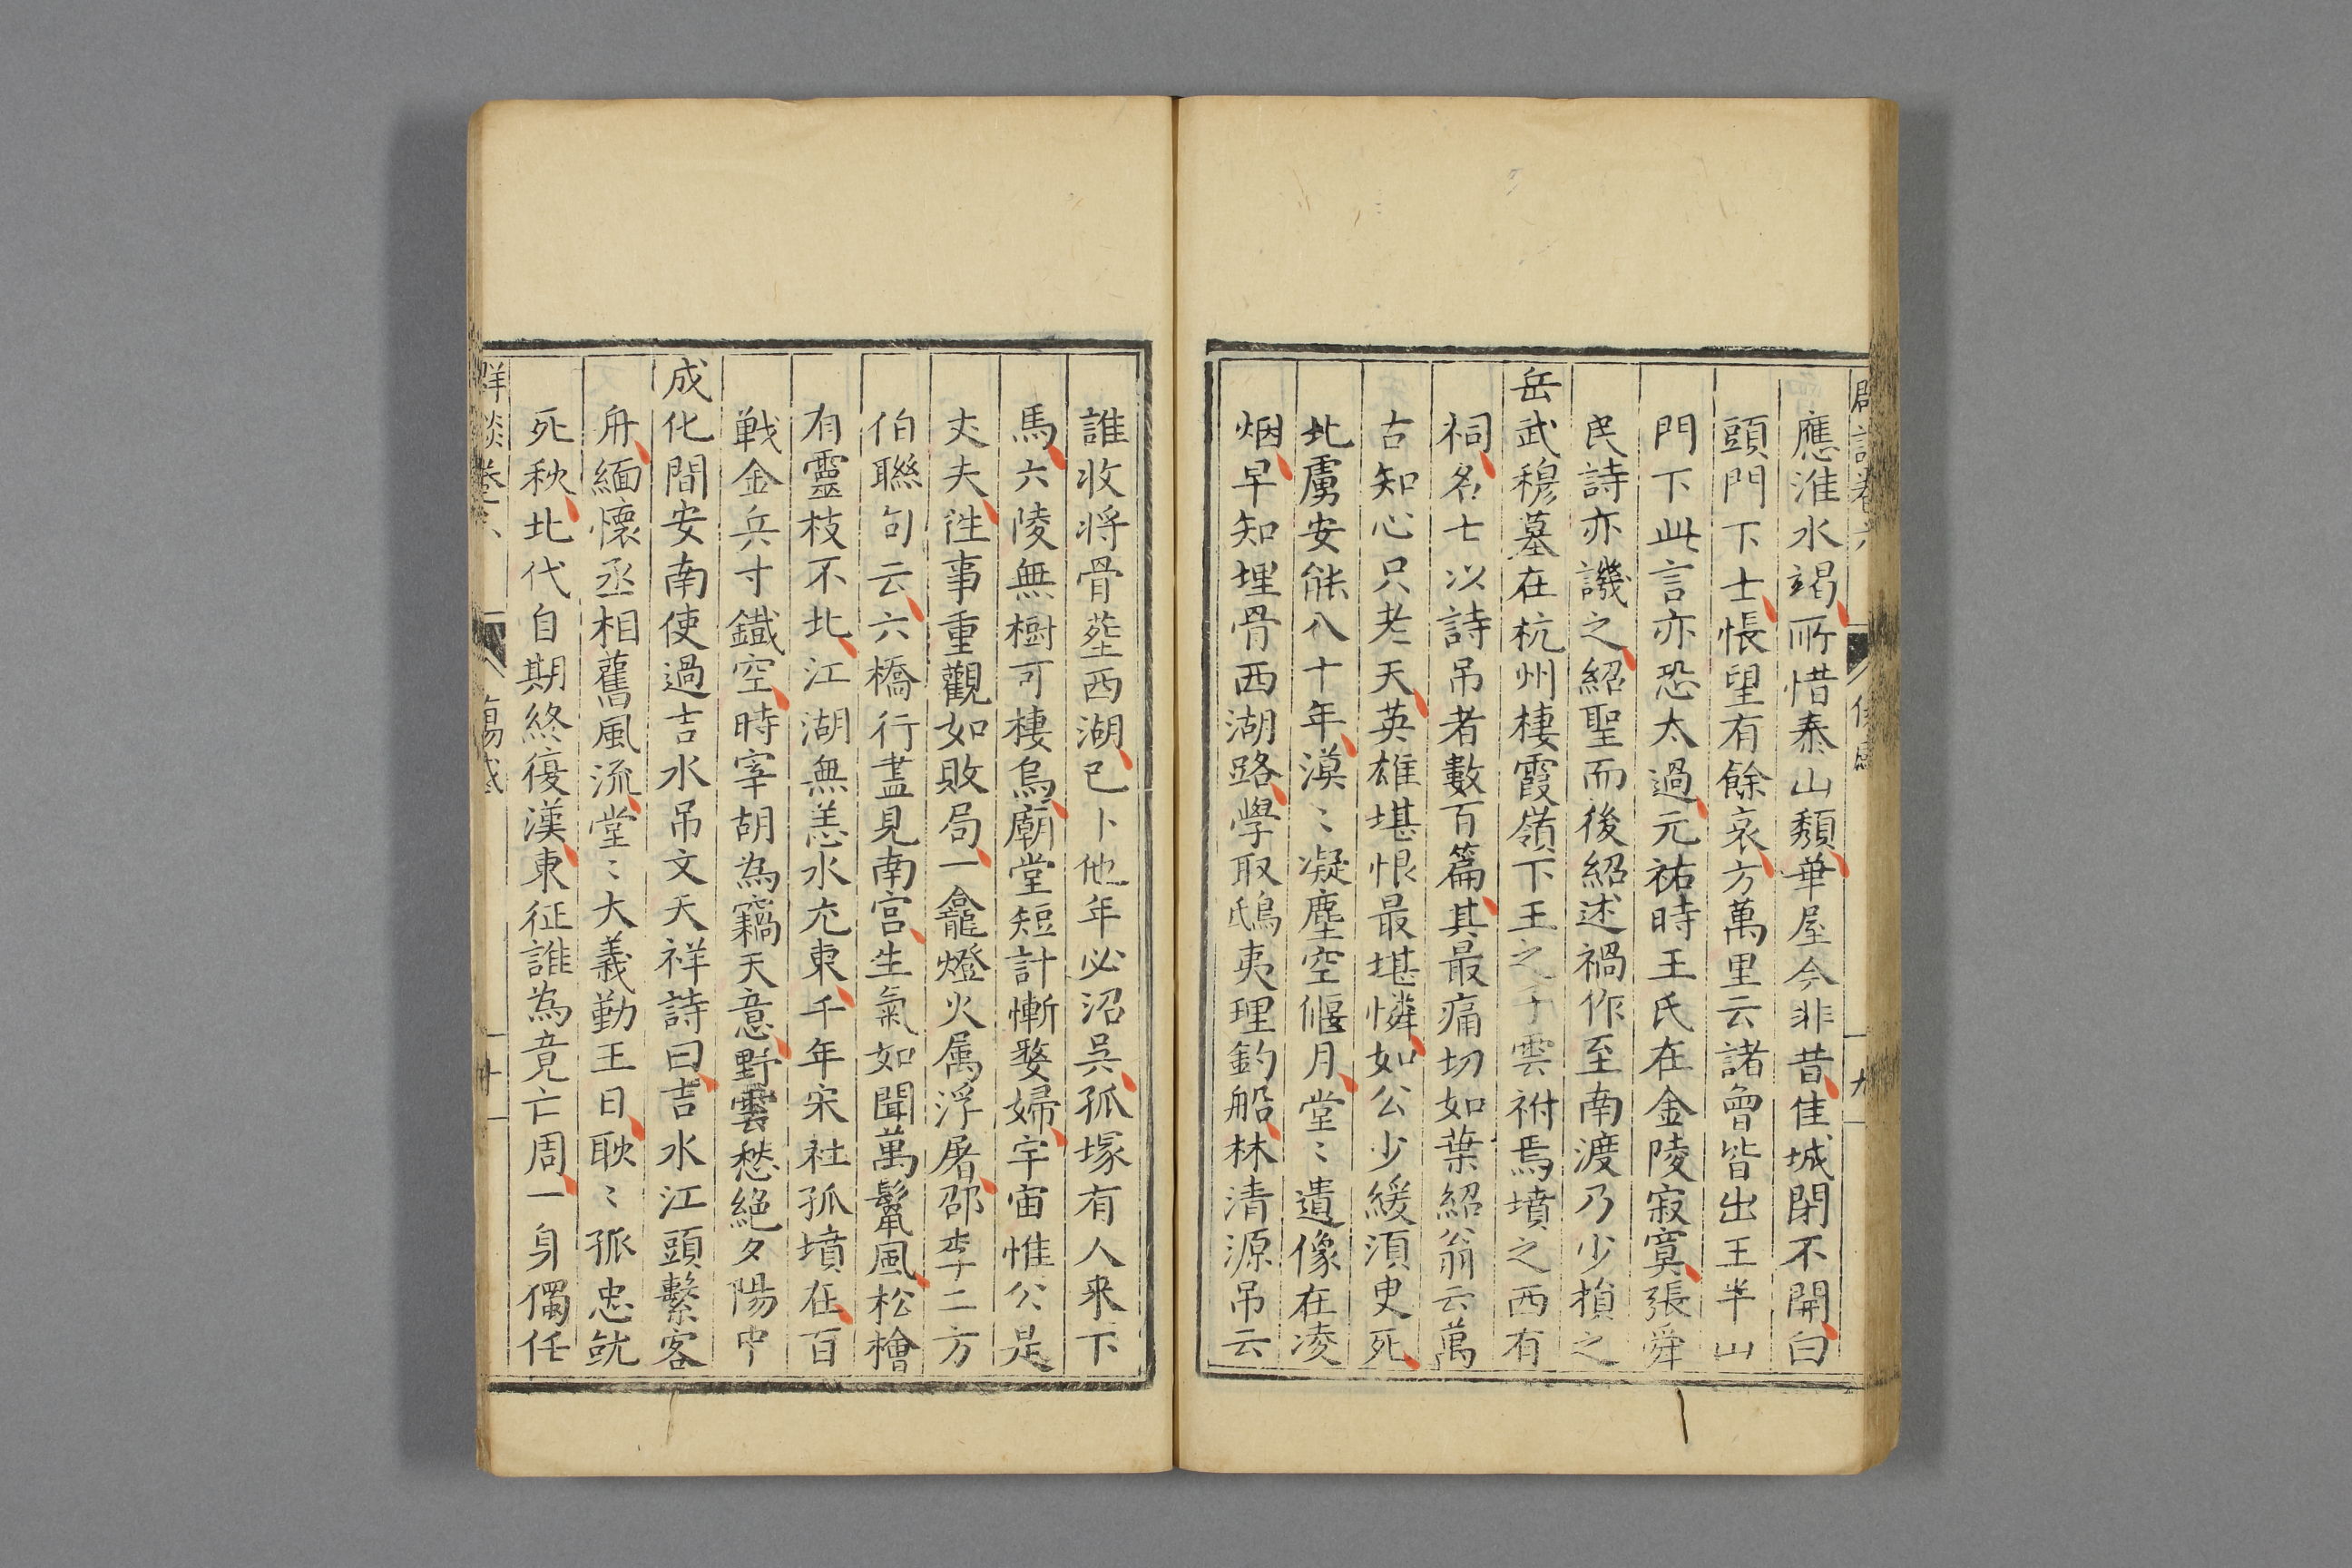 應淮水竭所惜泰山頹華屋今非昔佳城閉不開白
頭門下士悵望有餘哀方萬里云諸曾皆出王半山
門下此言亦恐太過元祐時王氏在金陵寂寞張舜
民詩亦譏之紹聖而後紹述禍作至南渡乃少損之
岳武穆墓在杭州棲霞嶺下王之子雲祔焉墳之西有
祠名士以詩吊者數百篇其最痛切如葉紹翁云萬
古知心只老天英雄堪恨最堪憐如公少緩湏臾死
北虜安能八十年漠〻凝塵空偃月堂〻遺像在凌
烟早知埋骨西湖路學取鴟夷理釣船林清源吊云
誰收将骨葬西湖已卜他年必沼吳孤塚有人来下
馬六陵無樹可棲烏廟堂短計慚嫠婦宇宙惟公是
丈夫徃事重觀如敗局一龕燈火属浮屠邵李二方
伯聮句云六橋行盡見南宫生氣如聞萬鬣風松檜
有靈枝不北江湖無恙水充東千年宋社孤墳在百
戦金兵寸鐡空時宰胡為竊天意野雲愁絶夕陽中
成化間安南使過吉水吊文天祥詩曰吉水江頭繫客
舟緬懷丞相舊風流堂〻大義勤王日耿〻孤忠就
死秋北伐自期終復漢東征誰為竟亡周一身獨任
群談卷六 傷感 十